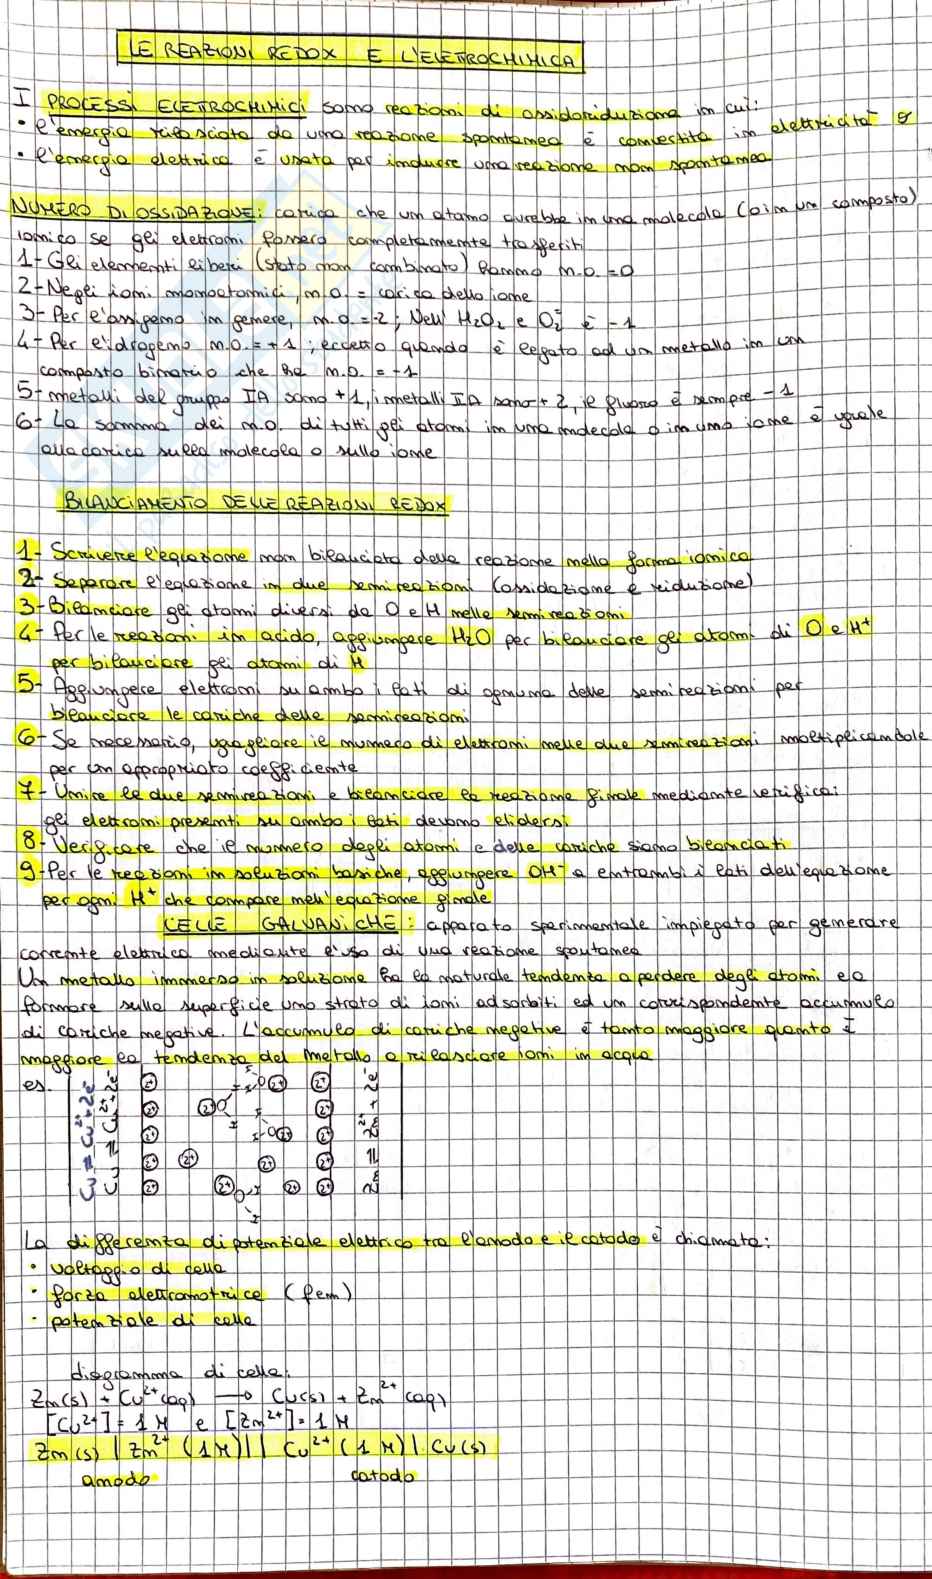 LE REAZIONI REDOX E L'ELETTROCHIMICA
I PROCESSI ELETTROCHIMICI sono reazioni di ossidoriduzione in cui:
• l'energia rilasciata da una reazione spontanea è convertita in elettricità e
• l'energia elettrica è usata per indurre una reazione non spontanea
NUMERO DI OSSIDAZIONE: carica che un atomo avrebbe in una molecola (o in un composto)
ionico se gli elettroni fossero completamente trasferiti
1- Gli elementi liberi (stato non combinato) hanno n.o. = 0
2- Negli ioni monoatomici, n.o. = carica dello ione
3- Per l'ossigeno in genere, n.o. = -2; Nell' H₂O₂ e O₂²⁻ è -1
4- Per l'idrogeno n.o. = +1; eccetto quando è legato ad un metallo in un
composto binario che ha n.o. = -1
5- metalli del gruppo IA sono +1, i metalli IIA sono +2, il fluoro è sempre -1
6- La somma dei n.o. di tutti gli atomi in una molecola o in uno ione è uguale
alla carica sulla molecola o sullo ione
BILANCIAMENTO DELLE REAZIONI REDOX
1- Scrivere l'equazione non bilanciata della reazione nella forma ionica
2- Separare l'equazione in due semireazioni (ossidazione e riduzione)
3- Bilanciare gli atomi diversi da O e H nelle semireazioni
4- Per le reazioni in acido, aggiungere H₂O per bilanciare gli atomi di O e H⁺
per bilanciare gli atomi di H
5- Aggiungere elettroni su ambo i lati di ognuna delle semireazioni per
bilanciare le cariche delle semireazioni
6- Se necessario, uguagliare il numero di elettroni nelle due semireazioni moltiplicandole
per un appropriato coefficiente
7- Unire le due semireazioni e bilanciare la reazione finale mediante verifica:
gli elettroni presenti su ambo i lati devono elidersi
8- Verificare che il numero degli atomi e delle cariche siano bilanciati
9- Per le reazioni in soluzioni basiche, aggiungere OH⁻ a entrambi i lati dell'equazione
per ogni H⁺ che compare nell'equazione finale
CELLE GALVANICHE: apparato sperimentale impiegato per generare
corrente elettrica mediante l'uso di una reazione spontanea
Un metallo immerso in soluzione ha la naturale tendenza a perdere degli atomi e a
formare sulla superficie uno strato di ioni adsorbiti ed un corrispondente accumulo
di cariche negative. L'accumulo di cariche negative è tanto maggiore quanto è
maggiore la tendenza del metallo a rilasciare ioni in acqua
es.
Cu ⇌ Cu²⁺ + 2e⁻
Cu ⇌ Cu²⁺ + 2e⁻
Zn ⇌ Zn²⁺ + 2e⁻
La differenza di potenziale elettrico tra l'anodo e il catodo è chiamata:
• voltaggio di cella
• forza elettromotrice (fem)
• potenziale di cella
diagramma di cella:
Zn(s) + Cu²⁺(aq) → Cu(s) + Zn²⁺(aq)
[Cu²⁺] = 1 M e [Zn²⁺] = 1 M
Zn(s) | Zn²⁺ (1 M) || Cu²⁺ (1 M) | Cu(s)
anodo catodo